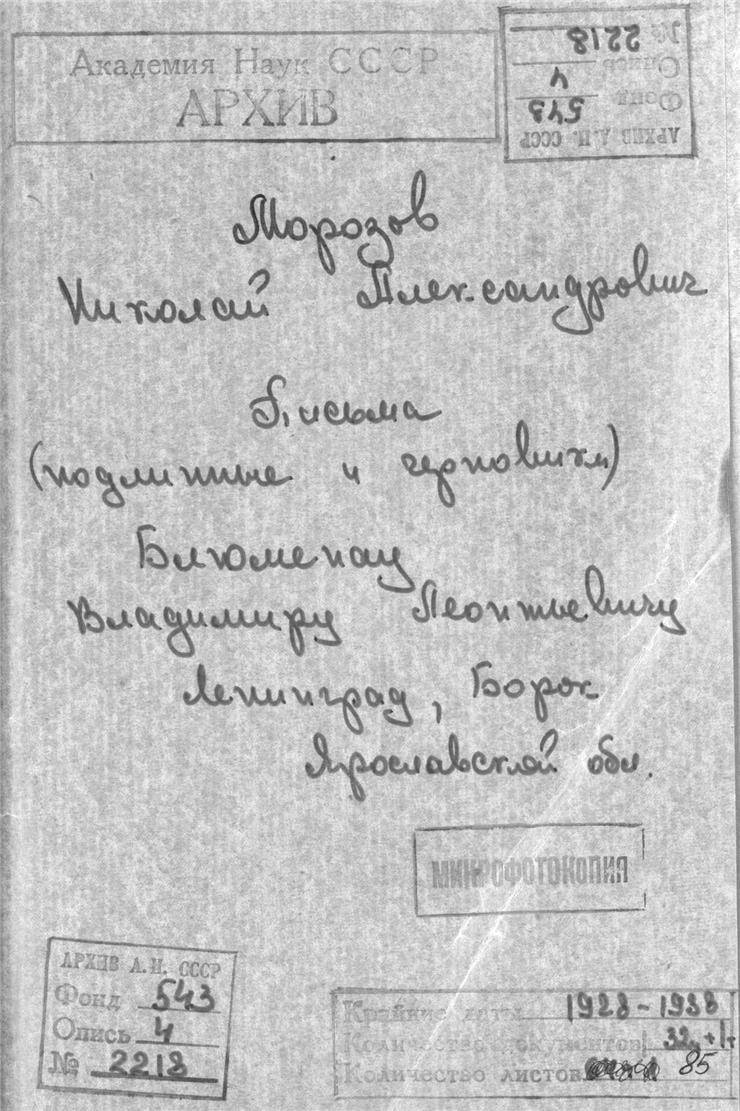 Академия Наук СССР
АРХИВ
АРХИВ А.Н. СССР
Фонд 543
Опись 4
№ 2218
Морозов
Николай Александрович
Письма
(подлинные и черновики)
Блюменау
Владимиру Леонтьевичу
Ленинград, Борок
Ярославской обл.
МИКРОФОТОКОПИЯ
АРХИВ А.Н. СССР
Фонд 543
Опись 4
№ 2218
Крайние даты 1928-1938
Количество документов 32
Количество листов 85